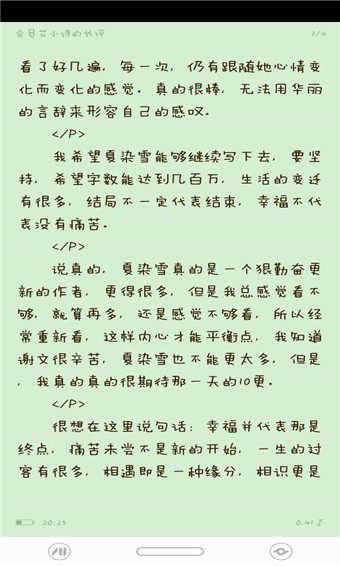 会易艾小诗的长评 2/4
看了好几遍，每一次，仍有跟随她心情变
化而变化的感觉。真的很棒，无法用华丽
的言辞来形容自己的感叹。
</P>
我希望夏染雪能够继续写下去，要坚
持，希望字数能达到几百万，生活的变迁
有很多，结局不一定代表结束，幸福不代
表没有痛苦。
</P>
说真的，夏染雪真的是一个狠勤奋更
新的作者，更得很多，但是我总感觉看不
够，就算再多，还是感觉不够看，所以经
常重新看，这样内心才能平衡点，我知道
谢文很辛苦，夏染雪也不能更太多，但是
，我真的真的很期待那一天的10更。
</P>
很想在这里说句话：幸福并代表那是
终点，痛苦未尝不是新的开始，一生的过
客有很多，相遇即是一种缘分，相识更是
20:25 0.41